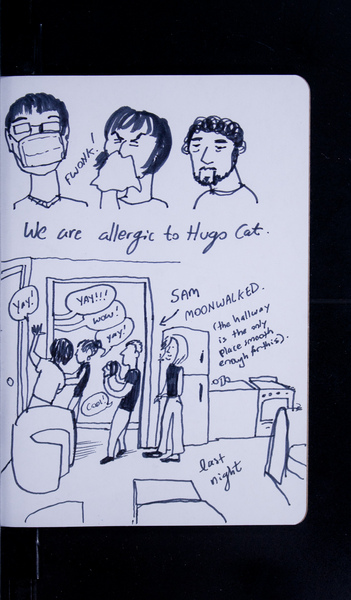 FWONK!
We are allergic to Hugo Cat.
YAY!
YAY!!!
WOW!
YAY!
COOL!
SAM
MOONWALKED.
(the hallway
is the only
place smooth
enough for this).
last
night